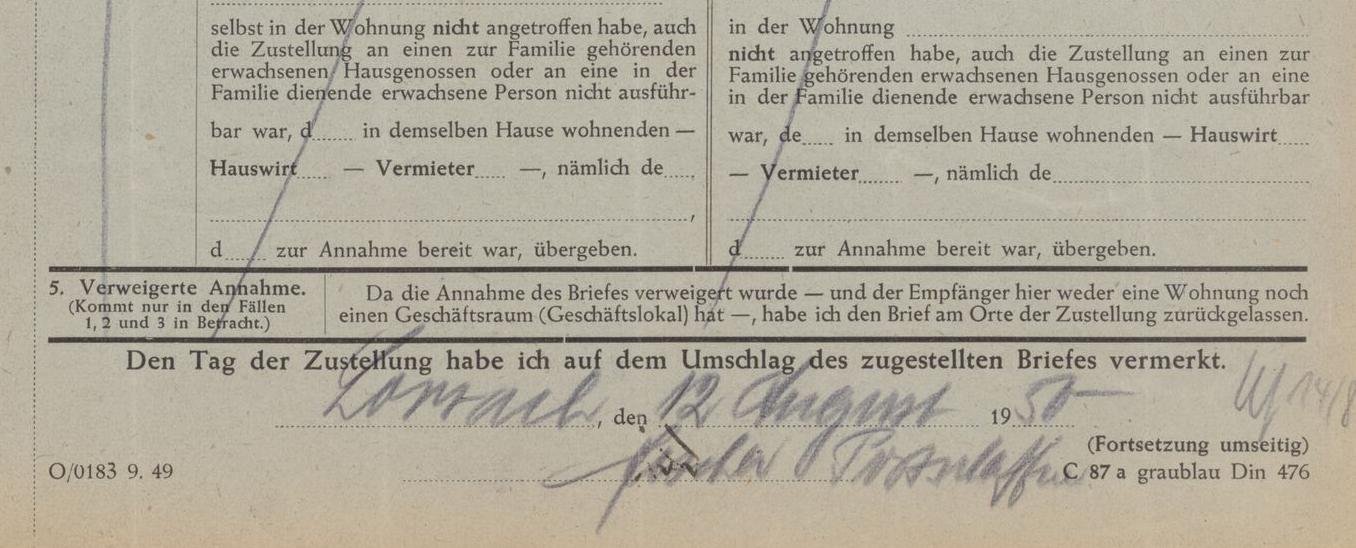 selbst in der Wohnung nicht angetroffen habe, auch
die Zustellung an einen zur Familie gehörenden
erwachsenen Hausgenossen oder an eine in der
Familie dienende erwachsene Person nicht ausführ-
bar war, d...... in demselben Hause wohnenden —
Hauswirt..... — Vermieter..... —, nämlich de.....
,
d...... zur Annahme bereit war, übergeben.
in der Wohnung
nicht angetroffen habe, auch die Zustellung an einen zur
Familie gehörenden erwachsenen Hausgenossen oder an eine
in der Familie dienende erwachsene Person nicht ausführbar
war, de..... in demselben Hause wohnenden — Hauswirt.....
— Vermieter....... —, nämlich de
d....... zur Annahme bereit war, übergeben.
5. Verweigerte Annahme.
(Kommt nur in den Fällen
1, 2 und 3 in Betracht.)
Da die Annahme des Briefes verweigert wurde — und der Empfänger hier weder eine Wohnung noch
einen Geschäftsraum (Geschäftslokal) hat —, habe ich den Brief am Orte der Zustellung zurückgelassen.
Den Tag der Zustellung habe ich auf dem Umschlag des zugestellten Briefes vermerkt.
Lörrach, den 12 August 1950
14/8
(Fortsetzung umseitig)
O/0183 9. 49
C 87 a graublau Din 476